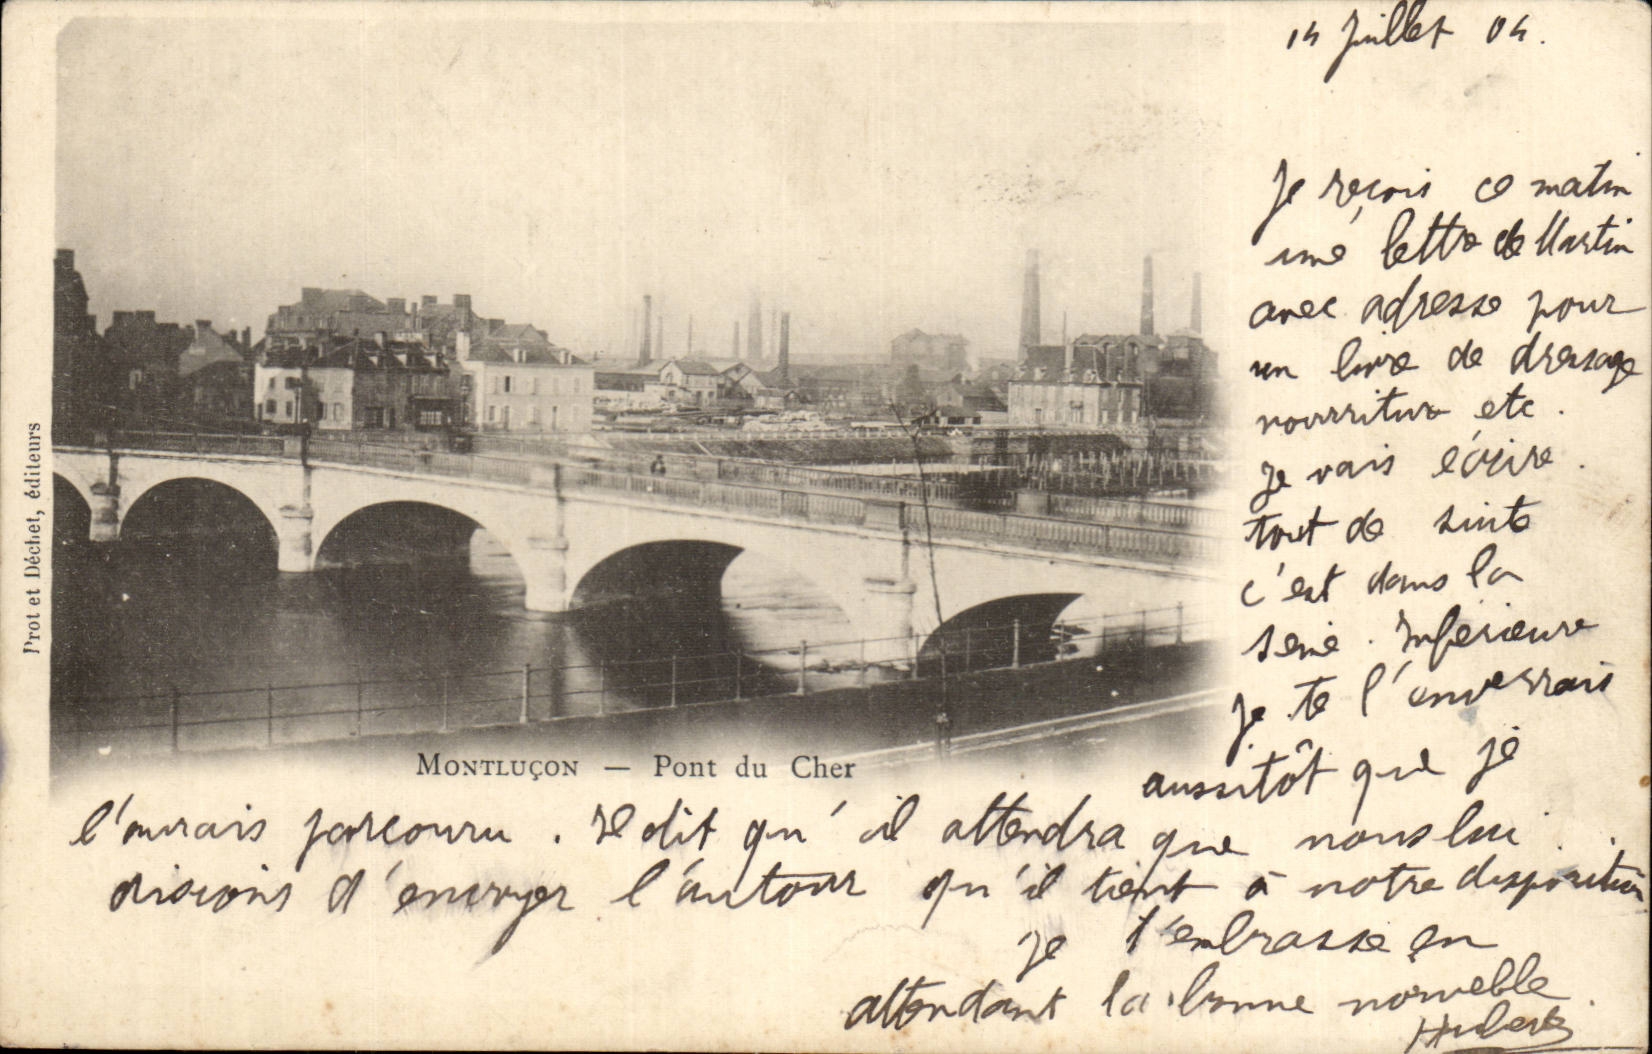 14 Juillet 04.
Je reçois ce matin
une lettre de Martin
avec adresse pour
un livre de dressage
nourriture etc.
Je vais écrire.
tout de suite
c'est dans la
seine. Inférieure
Je te l'enverrais
aussitôt que je
l'aurais parcouru. Il dit qu'il attendra que nous lui
disions d'envoyer l'autour qu'il tient à notre disposition
Je t'embrasse en
attendant la bonne nouvelle.
Hubert
Montluçon — Pont du Cher
Prot et Déchet, éditeurs